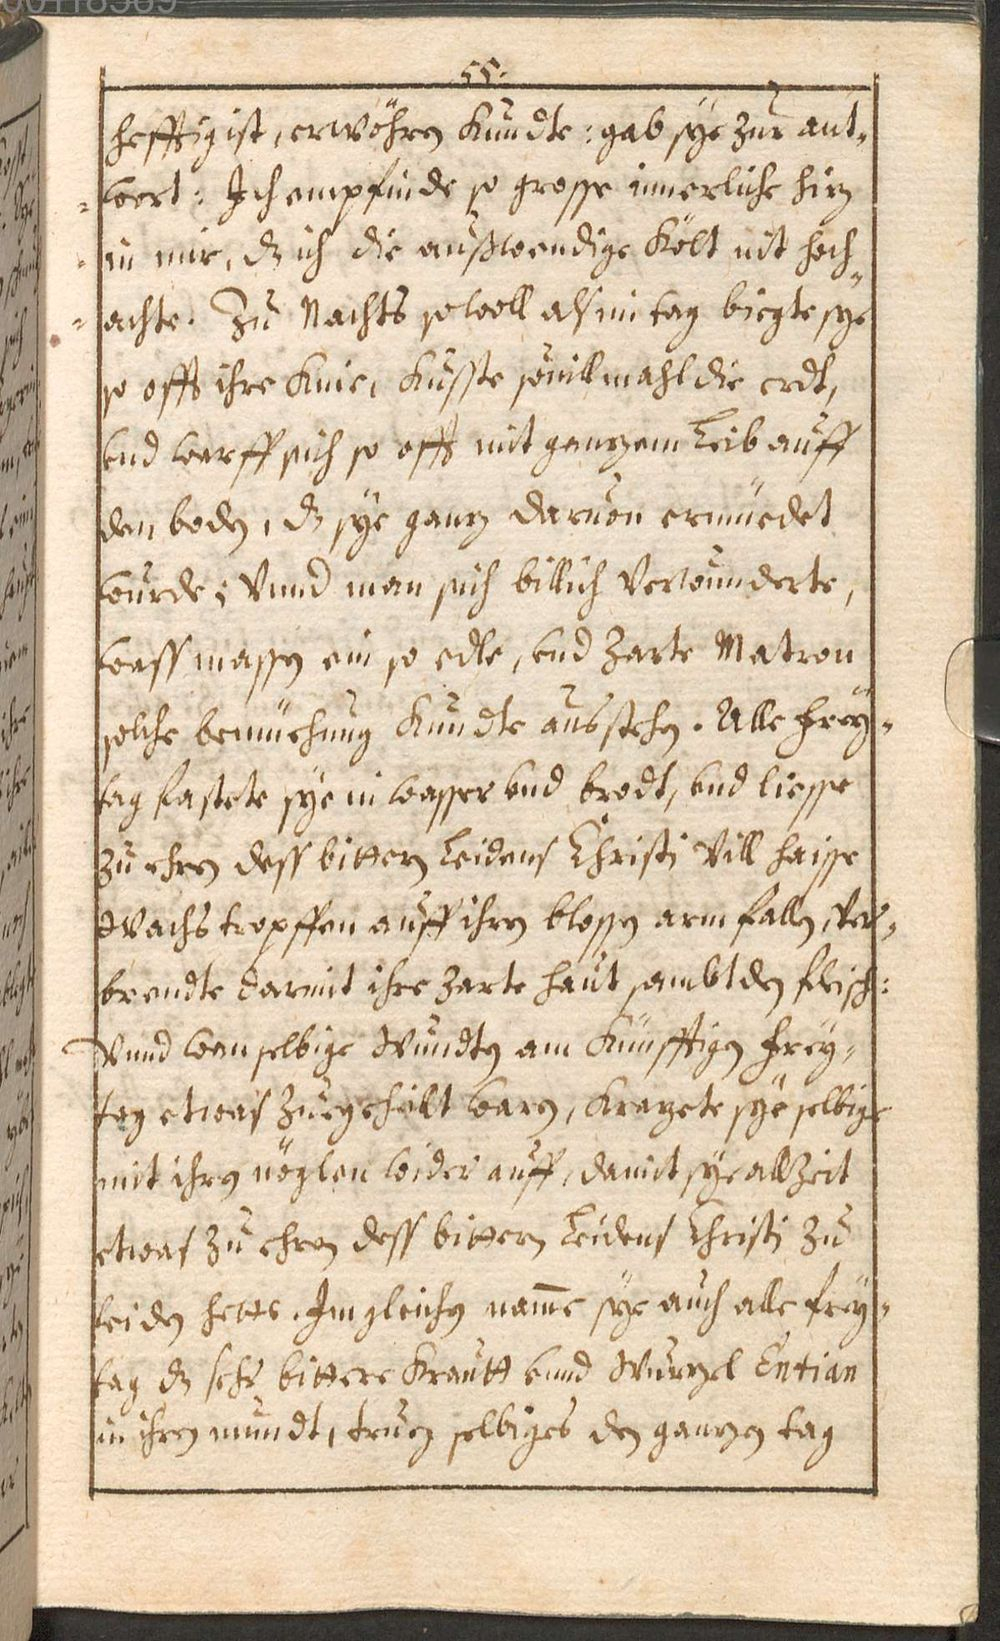 00118369
55.
hefftig ist, erwöhren kundte: gab sye zur ant-
=wort: Ich empfinde so grosse innerliche hiz
in mir, dz ich die außwendige költ nit hoch-
=achte. Zu Nachts so woll als im tag biegte sye
so offt ihre knie, küsste souill mahl die erdt,
vnd warff sich so offt mit ganzem Leib auff
den boden, dz sye ganz daruon ermüedet
wurde; Vnnd man sich billich verwunderte,
wass massen ein so edle, vnd zarte Matron
solche bemüehung kundte ausstehen. Alle frey-
tag fastete sye in wasser vnd brodt, vnd liesse
zu ehren dess bittern Leidens Christi vill haisse
Wachstropffen auff ihren blossen arm fallen, ver-
brendte darmit ihre zarte haut sambt den fleisch:
Vnnd wan selbige Wundten am künfftigen frey-
tag etwas zuegehailt waren, krazete sye selbige
mit ihren näglen wider auff, damit sye allzeit
etwas zu ehren dess bittern Leidens Christi zu
leiden hette. Im gleichen namme sye auch alle frey-
tag dz sehr bittere Krautt vnnd Wurzel Entian
in ihren mundt, trueg selbiges den ganzen tag